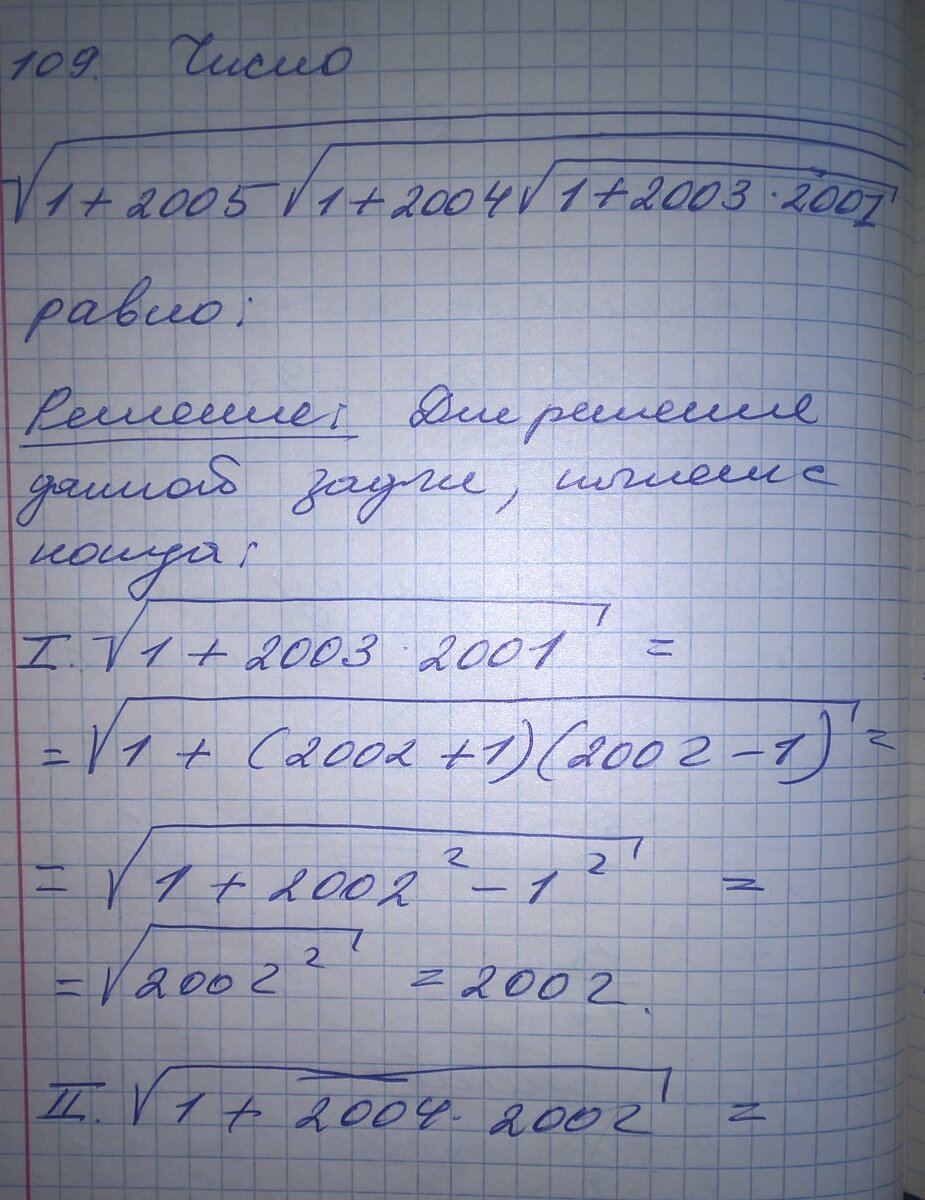 109. Число
√1+2005√1+2004√1+2003·2001
равно:
Решение: Для решение
данной задачи, начнем с
конца:
I. √1+2003·2001 =
=√1+(2002+1)(2002-1) =
=√1+2002²-1² =
=√2002² = 2002.
II. √1+2004·2002 =